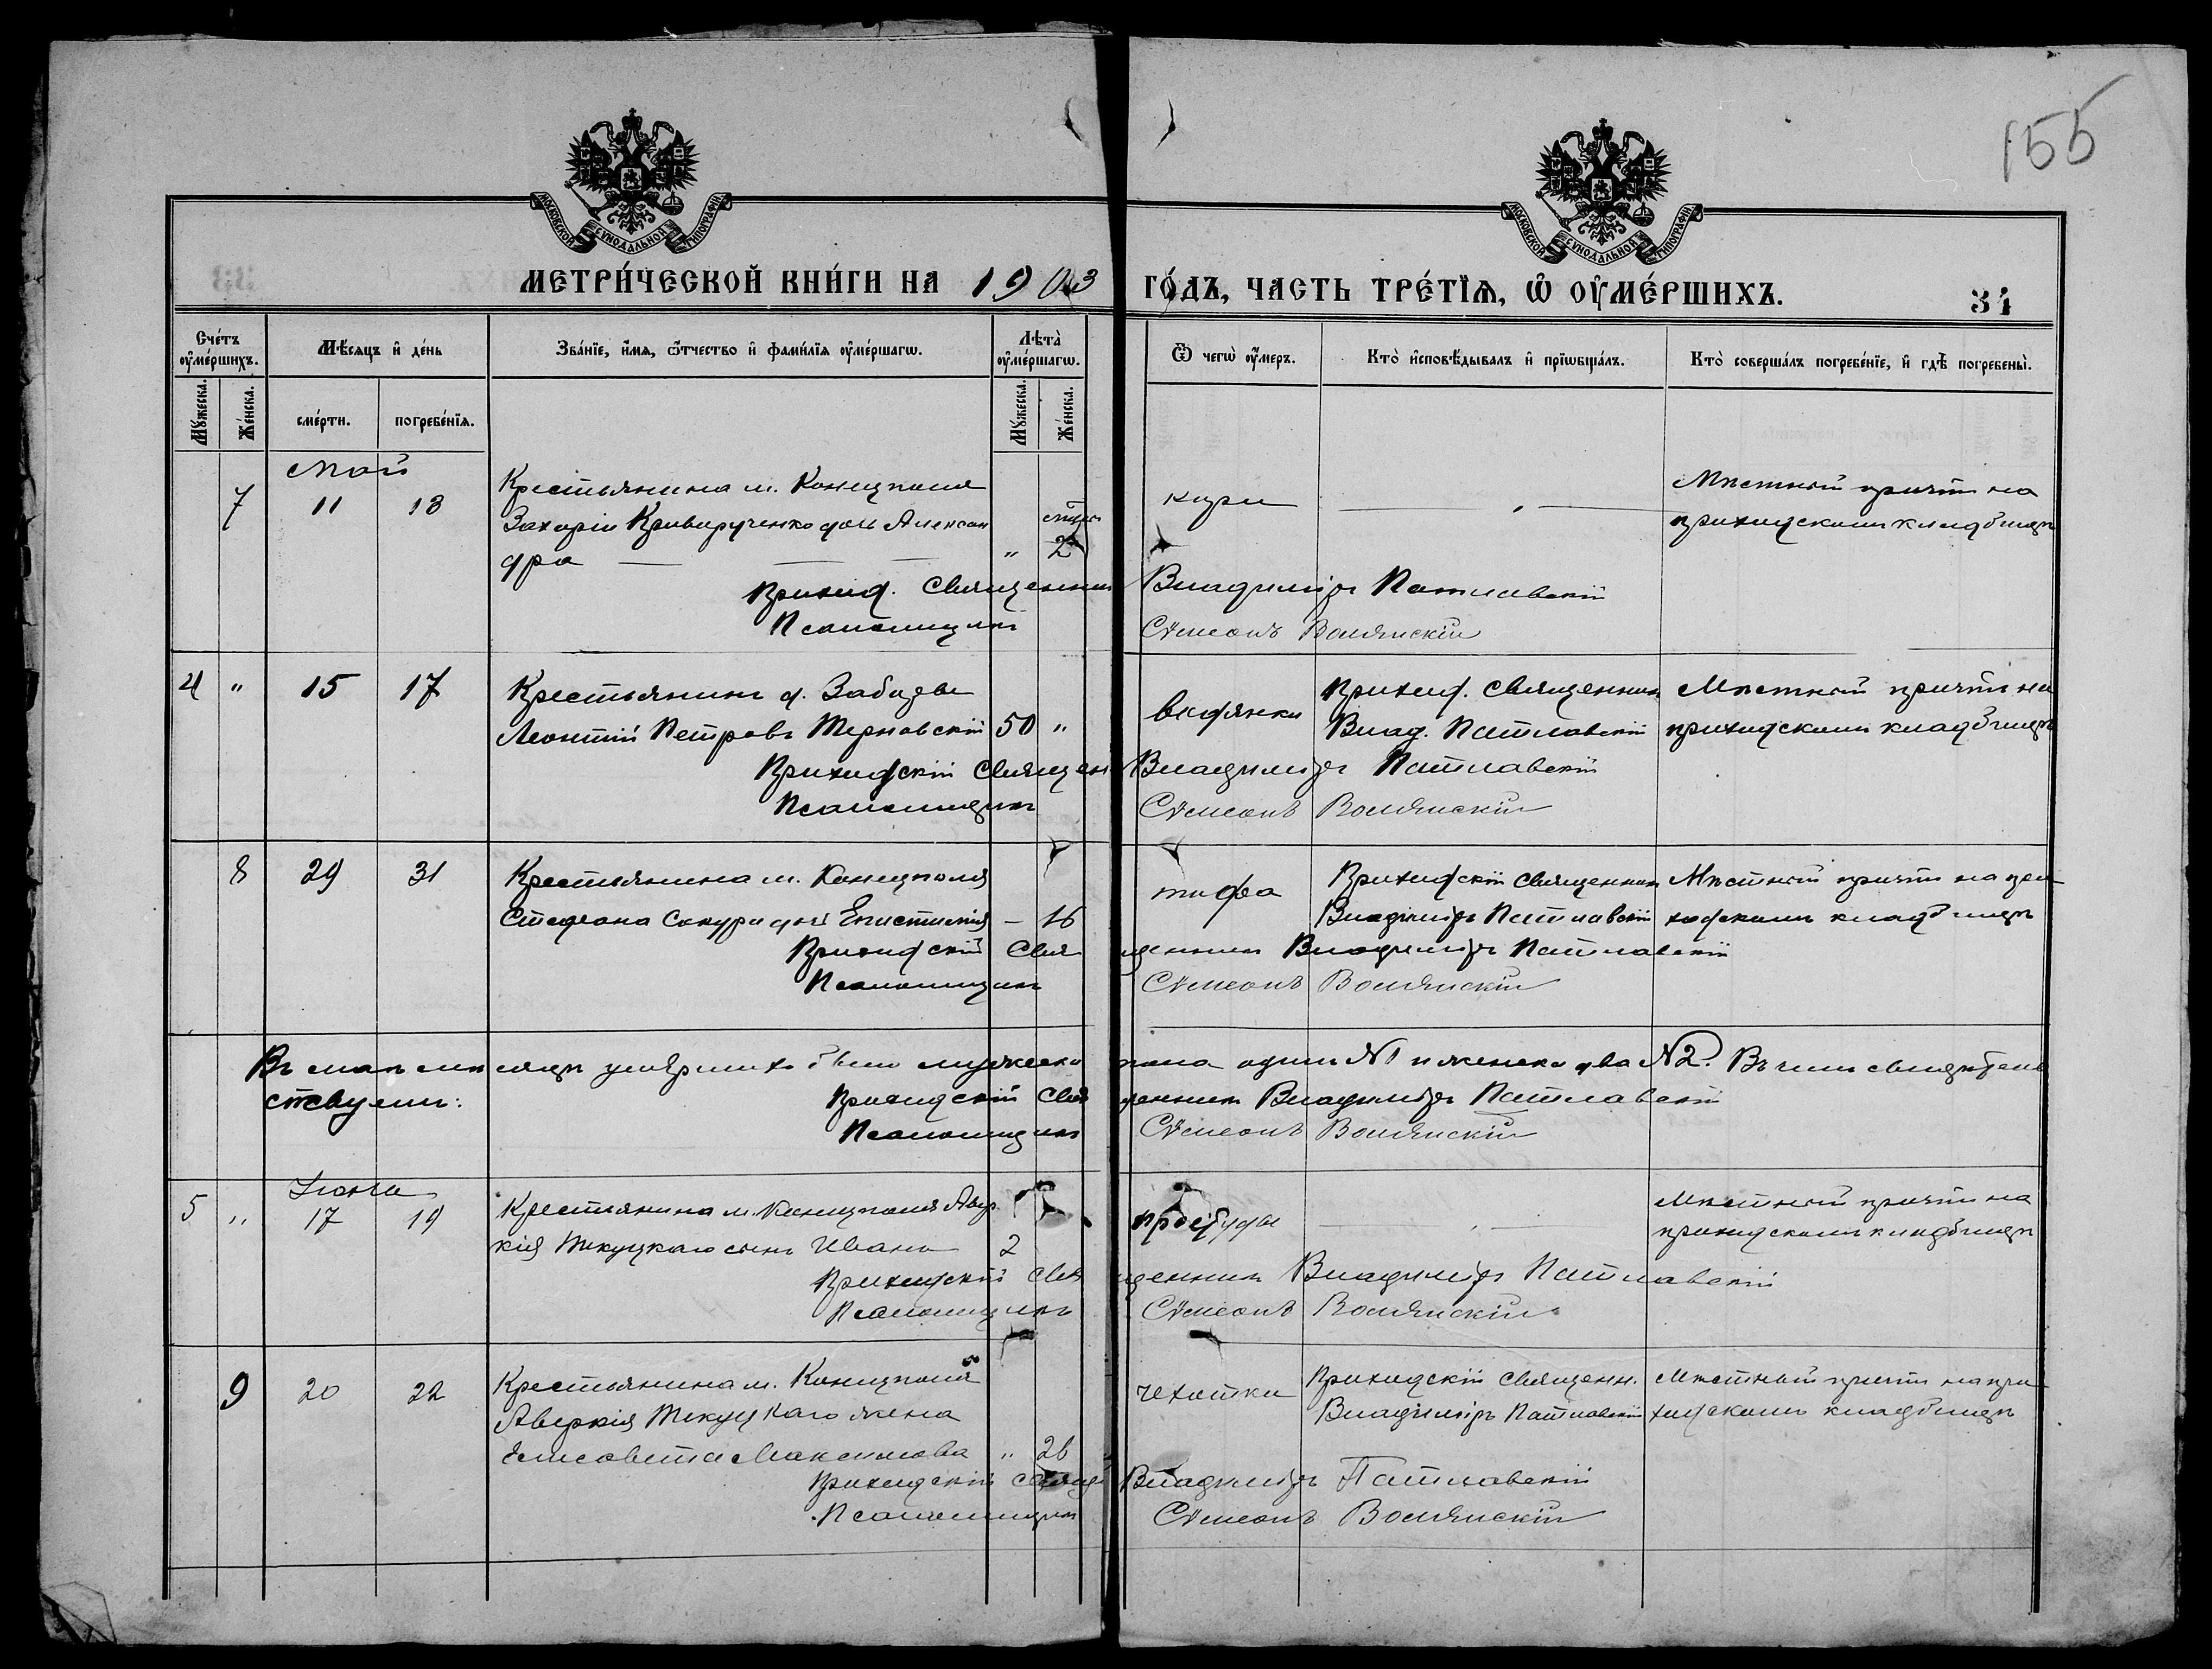 155
МОСКОВСКОЙ СѴНОДАЛЬНОЙ ТИПОГРАФІИ
МОСКОВСКОЙ СѴНОДАЛЬНОЙ ТИПОГРАФІИ
МЕТРИ́ЧЕСКОЙ КНИ́ГИ НА 1903 ГО́ДЪ, ЧАСТЬ ТРЕ́ТІЯ, Ѽ ОУ҆МЕ́РШИХЪ.
34
Сче́тъ оу҆ме́ршихъ.
Мѣ́сяцъ и҆ де́нь
Зва́нїе, и҆́мя, ѻ҆́тчество и҆ фами́лїя оу҆ме́ршагѡ.
Лѣта̀ оу҆ме́ршагѡ.
Ѿ чегѡ̀ оу҆́меръ.
Кто̀ и҆сповѣ́дывалъ и҆ прїѡбща́лъ.
Кто̀ соверша́лъ погребе́нїе, и҆ гдѣ̀ погребены̀.
Му́жеска.
Же́нска.
сме́рти.
погребе́нїя.
Му́жеска.
Же́нска.
Май
7 11 13
Крестьянина м. Конецполя
Захарія Криворученко дочь Алексан
дра " 2
кори
Мѣстный причтъ на
приходскомъ кладбищѣ
Приход. Священникъ Владиміръ Патлавскій
Псаломщикъ Сѵмеонъ Волянскій
4 " 15 17
Крестьянинъ д. Забозовы
Леонтій Петровъ Терновскій 50 "
водянки
Приход. Священникъ
Влад. Патлавскій
Мѣстный причтъ на
приходскомъ кладбищѣ
Приходскій Священ Владиміръ Патлавскій
Псаломщикъ Сѵмеонъ Волянскій
8 29 31
Крестьянина м. Конецполя
Стефана Сокура дочь Епистимія – 16
тифа
Приходскій Священникъ
Владиміръ Патлавскій
Мѣстный причтъ на при
ходскомъ кладбищѣ
Приходскій Священникъ Владиміръ Патлавскій
Псаломщикъ Сѵмеонъ Волянскій
Въ маѣ мѣсяцѣ умершихъ было мужеска пола одинъ №1 и женска два №2. Въ чемъ свидѣтель
ствуемъ: Приходскій Священникъ Владиміръ Патлавскій
Псаломщикъ Сѵмеонъ Волянскій
Іюня
5 " 17 19
Крестьянина м. Конецполя Авер
кія Текуцкаго сынъ Иванъ 2
простуды
Мѣстный причтъ на
приходскомъ кладбищѣ
Приходскій Священникъ Владиміръ Патлавскій
Псаломщикъ Сѵмеонъ Волянскій
9 20 22
Крестьянина м. Конецполя
Аверкія Текуцкаго жена
Елисавета Максимова " 26
чехотки
Приходскій Священн.
Владиміръ Патлавскій
Мѣстный причтъ на при
ходскомъ кладбищѣ
Приходскій Священ Владиміръ Патлавскій
Псаломщикъ Сѵмеонъ Волянскій